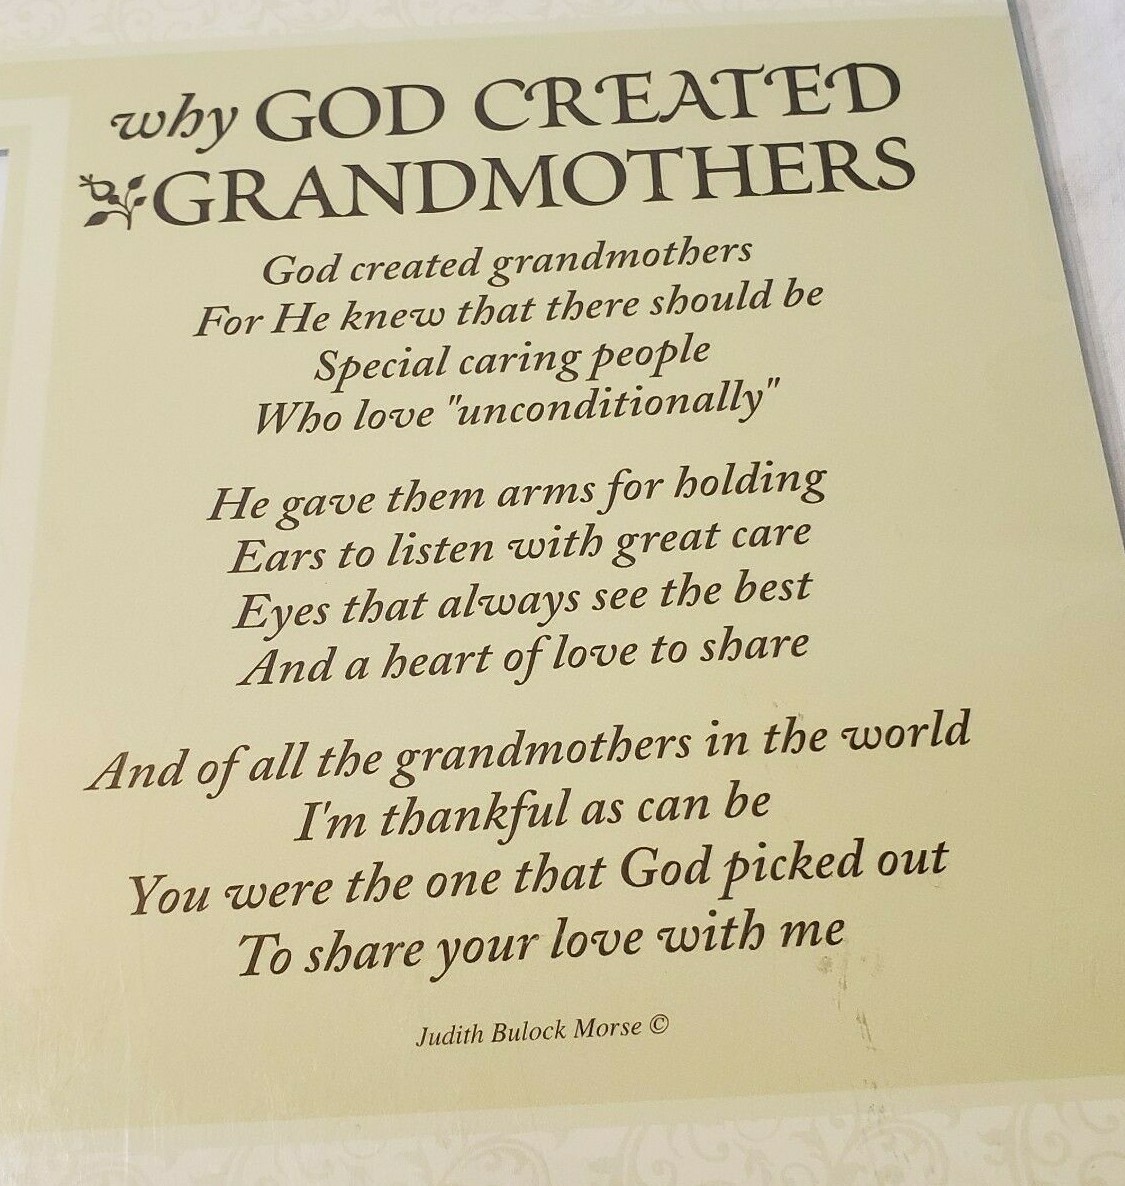 why GOD CREATED
GRANDMOTHERS
God created grandmothers
For He knew that there should be
Special caring people
Who love "unconditionally"
He gave them arms for holding
Ears to listen with great care
Eyes that always see the best
And a heart of love to share
And of all the grandmothers in the world
I'm thankful as can be
You were the one that God picked out
To share your love with me
Judith Bulock Morse ©